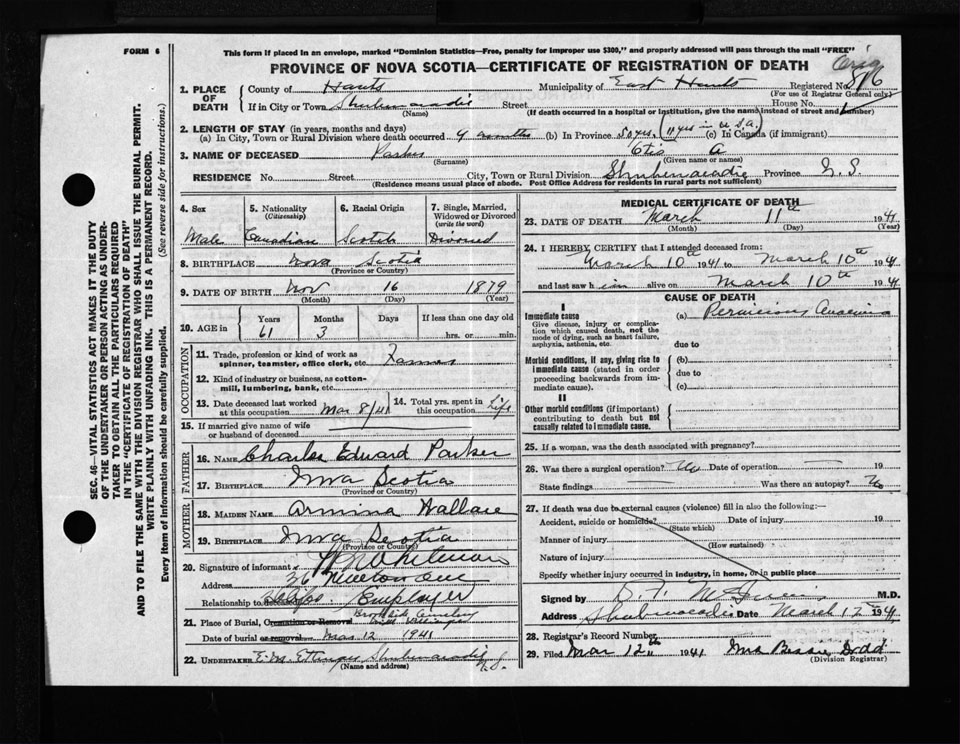 FORM 6
This form if placed in an envelope, marked "Dominion Statistics—Free, penalty for improper use $300," and properly addressed will pass through the mail "FREE"
PROVINCE OF NOVA SCOTIA—CERTIFICATE OF REGISTRATION OF DEATH
Orig
SEC. 46—VITAL STATISTICS ACT MAKES IT THE DUTY
OF THE UNDERTAKER OR PERSON ACTING AS UNDER-
TAKER TO OBTAIN ALL THE PARTICULARS REQUIRED
IN THE "CERTIFICATE OF REGISTRATION OF DEATH"
AND TO FILE THE SAME WITH THE DIVISION REGISTRAR WHO SHALL ISSUE THE BURIAL PERMIT.
WRITE PLAINLY WITH UNFADING INK. THIS IS A PERMANENT RECORD.
Every item of information should be carefully supplied. (See reverse side for instructions.)
1. PLACE OF DEATH
County of Hants Municipality of East Hants Registered No. 816
(For use of Registrar General only)
If in City or Town Shubenacadie Street House No.
(Name) (If death occurred in a hospital or institution, give the name instead of street and number)
2. LENGTH OF STAY (in years, months and days)
(a) In City, Town or Rural Division where death occurred 4 months (b) In Province 50 yrs. (11 yrs in U.S.A.) (c) In Canada (if immigrant)
3. NAME OF DECEASED Parker Otis A
(Surname) (Given name or names)
RESIDENCE No. Street City, Town or Rural Division Shubenacadie Province N.S.
(Residence means usual place of abode. Post Office Address for residents in rural parts not sufficient)
4. Sex
Male
5. Nationality
(Citizenship)
Canadian
6. Racial Origin
Scotch
7. Single, Married,
Widowed or Divorced
(write the word)
Divorced
8. BIRTHPLACE Nova Scotia
(Province or Country)
9. DATE OF BIRTH Nov 16 1879
(Month) (Day) (Year)
10. AGE in Years Months Days If less than one day old
61 3 hrs. or min.
OCCUPATION
11. Trade, profession or kind of work as
spinner, teamster, office clerk, etc. Farmer
12. Kind of industry or business, as cotton-
mill, lumbering, bank, etc.
13. Date deceased last worked
at this occupation Mar 8/41
14. Total yrs. spent in
this occupation Life
15. If married give name of wife
or husband of deceased
FATHER
16. NAME Charles Edward Parker
17. BIRTHPLACE Nova Scotia
(Province or Country)
MOTHER
18. MAIDEN NAME Armina Wallace
19. BIRTHPLACE Nova Scotia
(Province or Country)
20. Signature of informant x Whitman
Address 36 Newton Ave
Relationship to deceased Employer
21. Place of Burial, Cremation or Removal
Date of burial or removal Mar 12 1941
22. UNDERTAKER E.M. Shubenacadie N.S.
(Name and address)
MEDICAL CERTIFICATE OF DEATH
23. DATE OF DEATH March 11th 1941
(Month) (Day) (Year)
24. I HEREBY CERTIFY that I attended deceased from:
March 10th 1941 to March 10th 1941
and last saw him alive on March 10th 1941
CAUSE OF DEATH
I
Immediate cause
Give disease, injury or complica-
tion which caused death, not the
mode of dying, such as heart failure,
asphyxia, asthenia, etc.
(a) Pernicious Anaemia
due to
Morbid conditions, if any, giving rise to
immediate cause (stated in order
proceeding backwards from im-
mediate cause).
(b)
due to
(c)
II
Other morbid conditions (if important)
contributing to death but not
causally related to immediate cause.
25. If a woman, was the death associated with pregnancy?
26. Was there a surgical operation? No Date of operation 19
State findings Was there an autopsy? No
27. If death was due to external causes (violence) fill in also the following:—
Accident, suicide or homicide? Date of injury 19
(State which)
Manner of injury
(How sustained)
Nature of injury
Specify whether injury occurred in industry, in home, or in public place
Signed by D. F. M.D.
Address Shubenacadie Date March 12 1941
28. Registrar's Record Number
29. Filed Mar 12th 1941 Mrs Bessie Dodd
(Division Registrar)